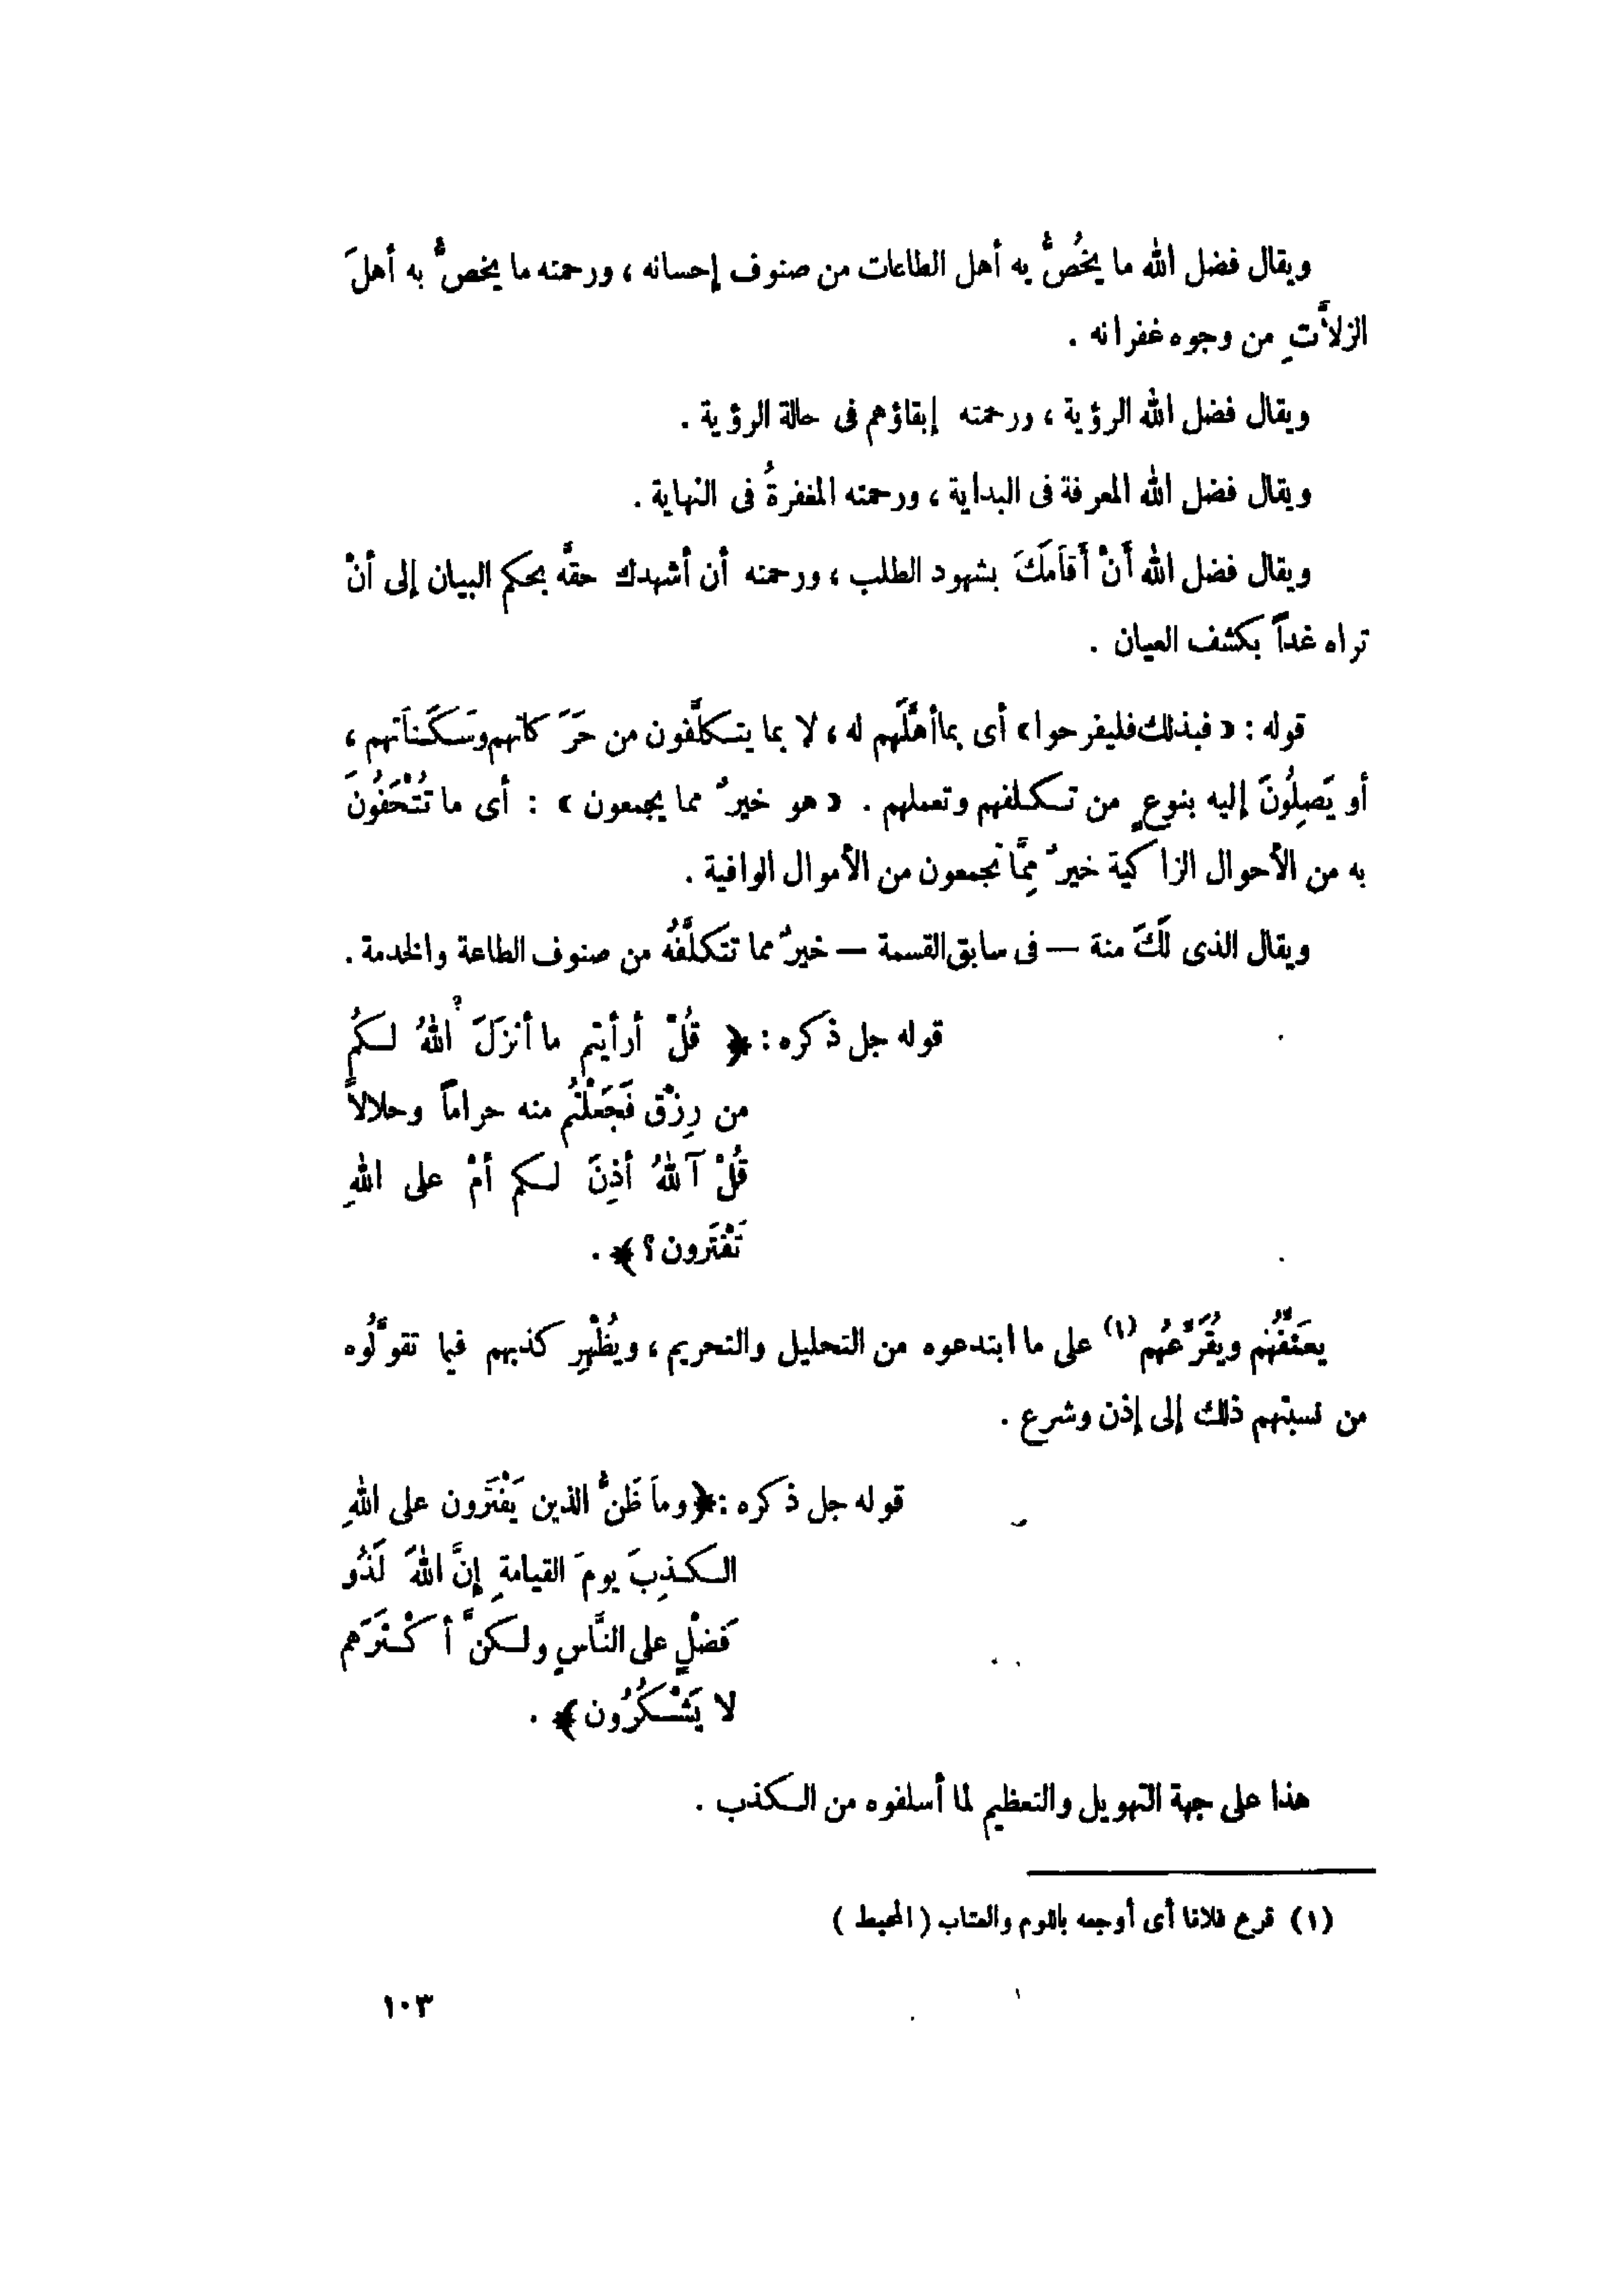 ويقال فضل الله ما يخُصُّ به أهل الطاعات من صنوف إحسانه ، ورحمته ما يخص ُّ به أهلَ
الزلاَّتِ من وجوه غفرانه .
ويقال فضل الله الرؤية ، ورحمته إبقاؤهم فى حالة الرؤية .
ويقال فضل الله المعرفة فى البداية ، ورحمته المغفرةُ فى النهاية .
ويقال فضل الله أَنْ أَقاَمَكَ بشهود الطلب ، ورحمته أن أشهدك حقَّه بحكم البيان إلى أنْ
تراه غداً بكشف العيان .
قوله : « فبذلك فليفرحوا » أى بما أهَّلَهم له ، لا بما يتكلَّفون من حَرَكاتهم وسَكَناَتهم ،
أو يَصِلُونَ إليه بنوعٍ من تكلفهم وتعملهم . « هو خيرٌ مما يجمعون » : أى ما تُتْحَفُونَ
به من الأحوال الزاكية خيرٌ مِمَّا تجمعون من الأموال الوافية .
ويقال الذى لَكَ منة — فى سابق القسمة — خيرٌ مما تتكلَّفُه من صنوف الطاعة والخدمة .
قوله جل ذكره : ﴿ قُلْ أرأيتم ما أنزَلَ اللهُ لكُم
من رِزْق فَجَعَلْتُم منه حراماً وحلالاً
قُلْ آللهُ أذِنَ لكم أمْ على اللهِ
تَفْتَرون ؟ ﴾ .
يعَنِّفُهُم ويُقَرِّعُهُم (١) على ما ابتدعوه من التحليل والتحريم ، ويُظْهِر كذبهم فيما تقوَّلُوه
من نسبتهم ذلك إلى إذن وشرع .
قوله جل ذكره : ﴿ وماَ ظَنُّ الذين يَفْتَرون على اللهِ
الكذِبَ يومَ القيامةِ إِنَّ اللهَ لَذُو
فَضْلٍ على النَّاسِ ولكنَّ أكْثَرَهم
لا يَشْكُرُون ﴾ .
هذا على جهة التهويل والتعظيم لما أسلفوه من الكذب .
(١) قرع فلانا أى أوجعه باللوم والعتاب ( المحيط )
١٠٣